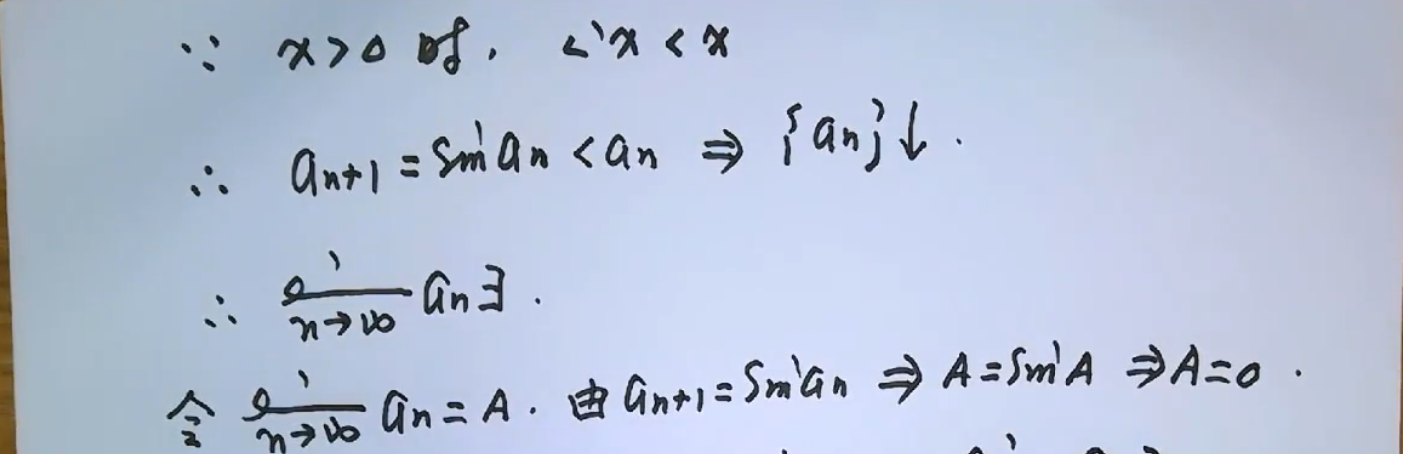 ∵ x>0 时, sin x < x
∴ a_{n+1} = sin a_n < a_n ⇒ {a_n}↓.
∴ lim_{n→∞} a_n ∃.
令 lim_{n→∞} a_n = A. 由 a_{n+1} = sin a_n ⇒ A = sin A ⇒ A = 0.